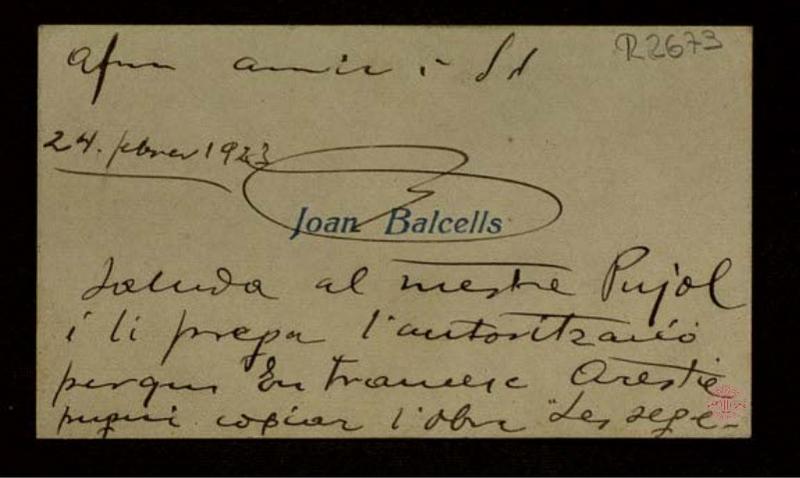 R2673
afm amic i Sd
24. febrer 1923
Joan Balcells
saluda al mestre Pujol
i li prega l'autorització
perque En Francesc Orestie
pugui copiar l'obra "Les sege-